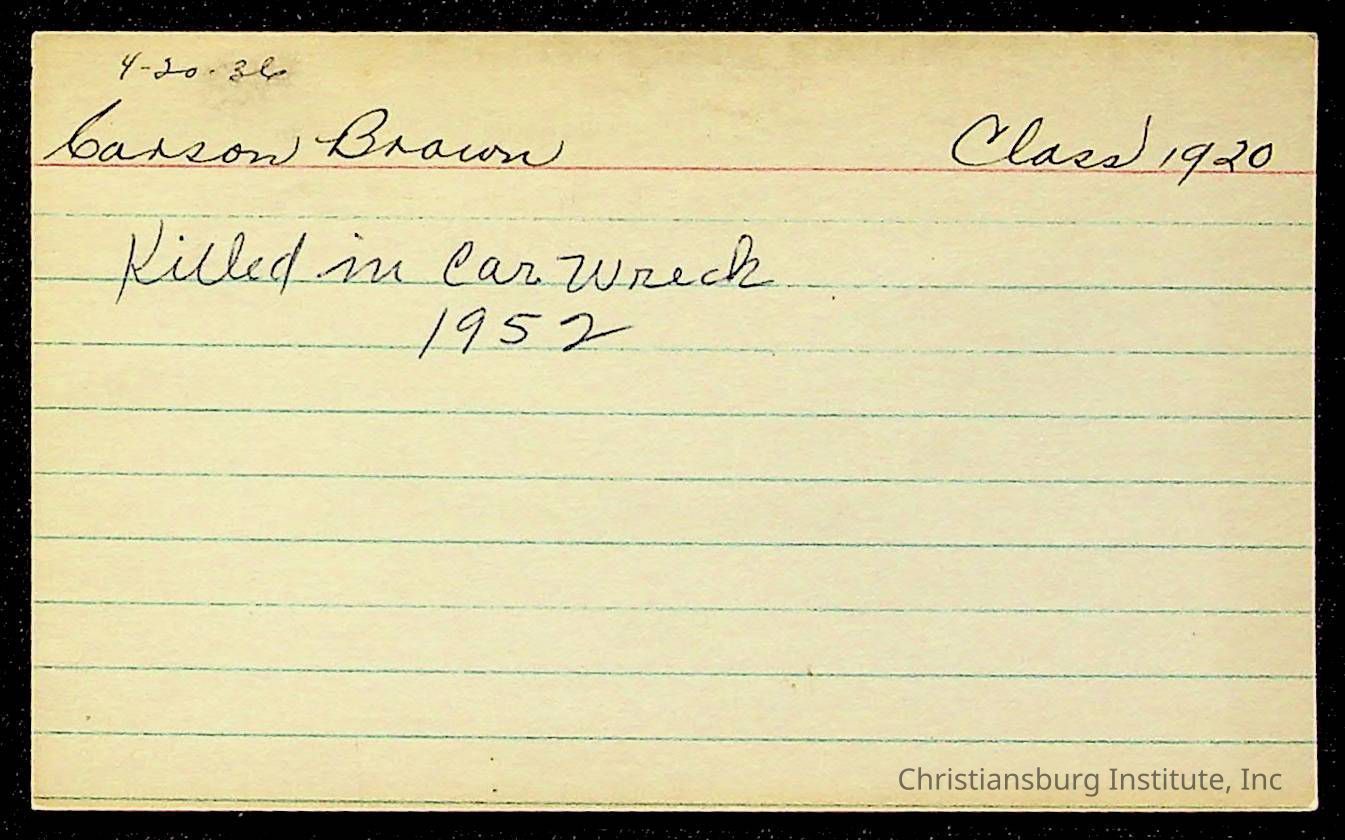 4-20-36
Carson Brown Class 1920
Killed in Car Wreck
1952
Christiansburg Institute, Inc